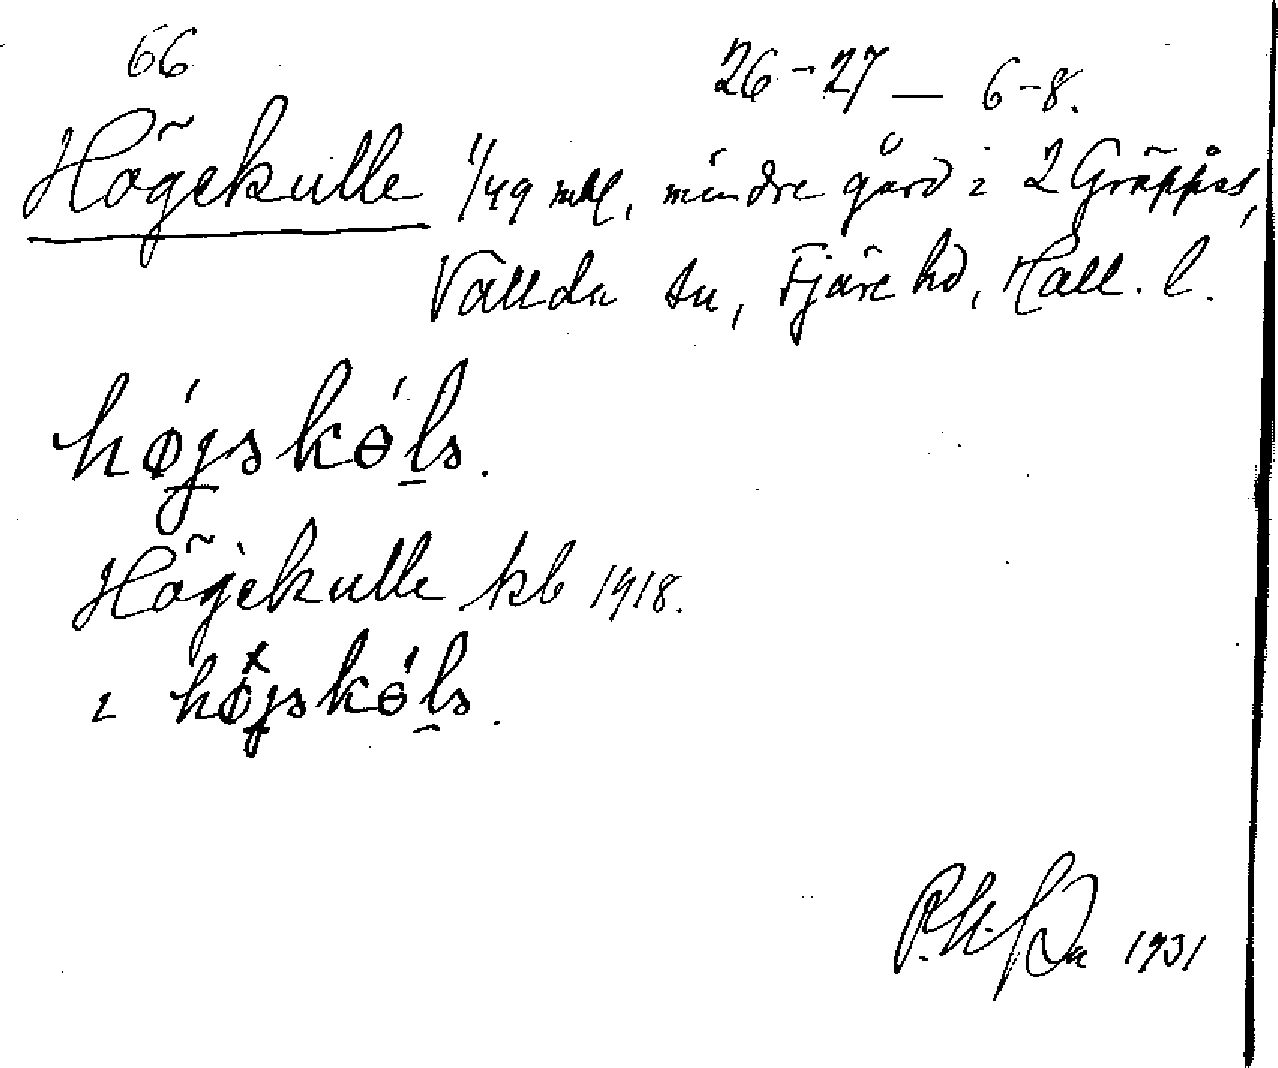 66
26-27 — 6-8.
Högekulle 1/49 mtl, mindre gård i 2 Gräppås,
Vallda sn, Fjäre hd, Hall. l.
hø´jskɵ´ls.
Högekulle kb 1918.
i højskɵ´ls.
1931